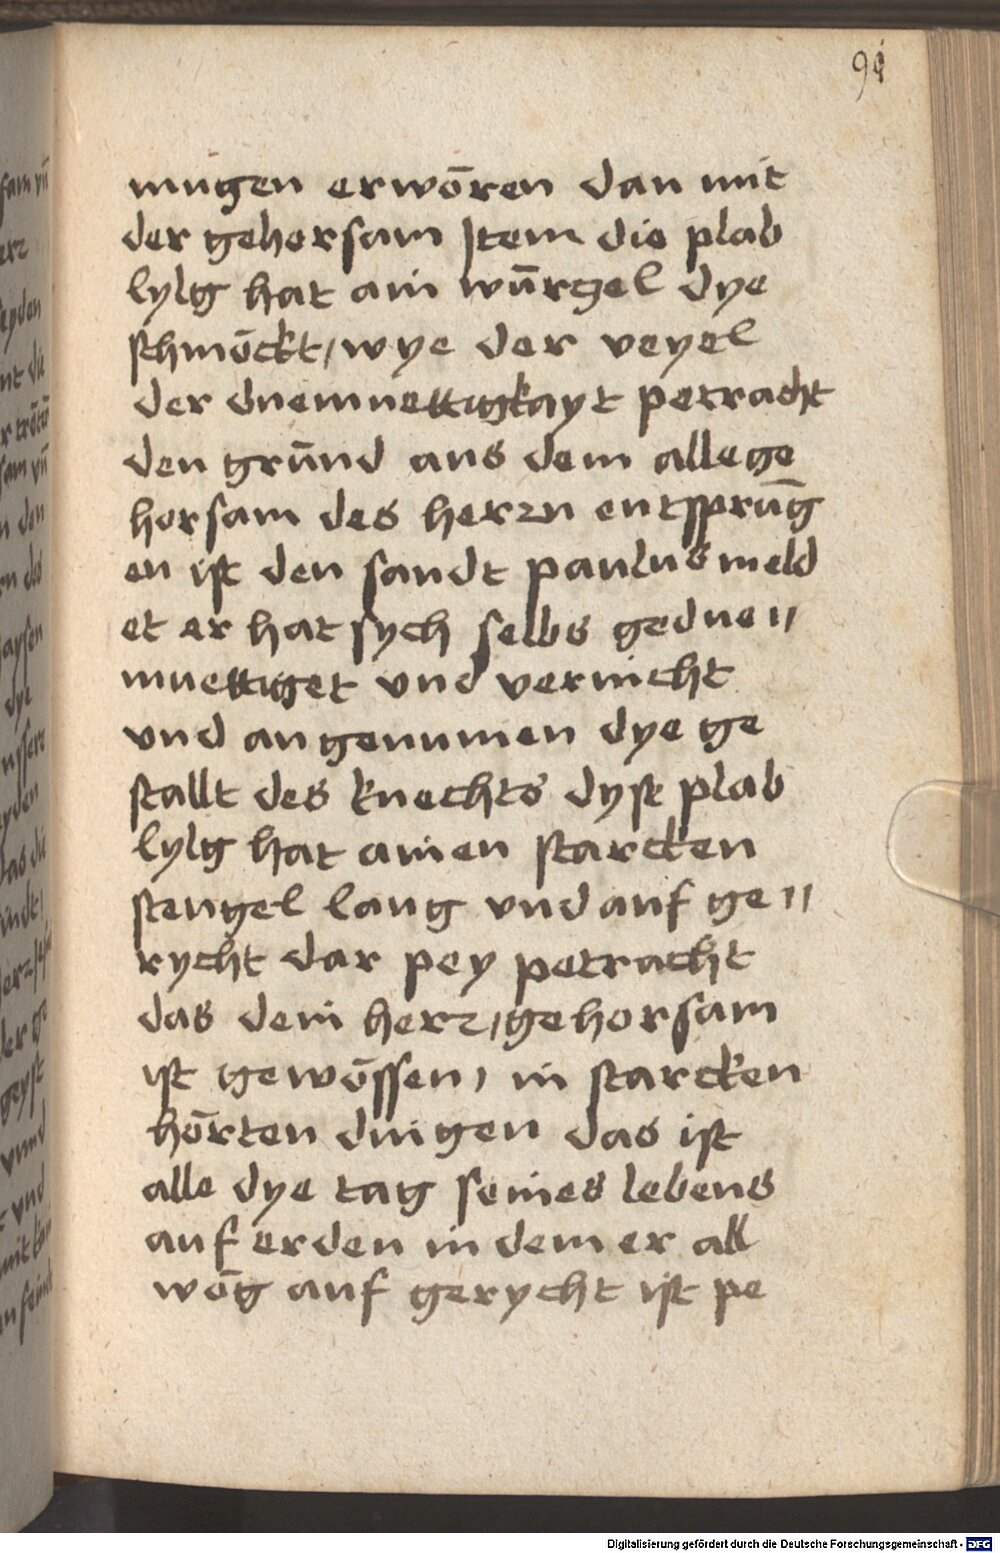 91
mugen erwōren dan mit
der gehorsam Item die plab
lylg hat ain wūrczel dye
schmōckt / wye der veyel
der duemuettigkayt petracht
den grūnd aus dem allege
horsam des herzn entsprūg
en ist den sandt paulus meld
et er hat sych selbs gedue〃
muettiget vnd vernicht
vnd angenumen dye ge
stallt des knechts dyse plab
lylg hat ainen starcken
stengel lang vnd auf ge〃
rycht dar pey petracht
das dein herz / gehorsam
ist gewōssen / in starcken
hōrten dingen das ist
alle dye tag seines lebens
auf erden in dem er all
wōg auf gerycht ist pe
Digitalisierung gefördert durch die Deutsche Forschungsgemeinschaft - DFG